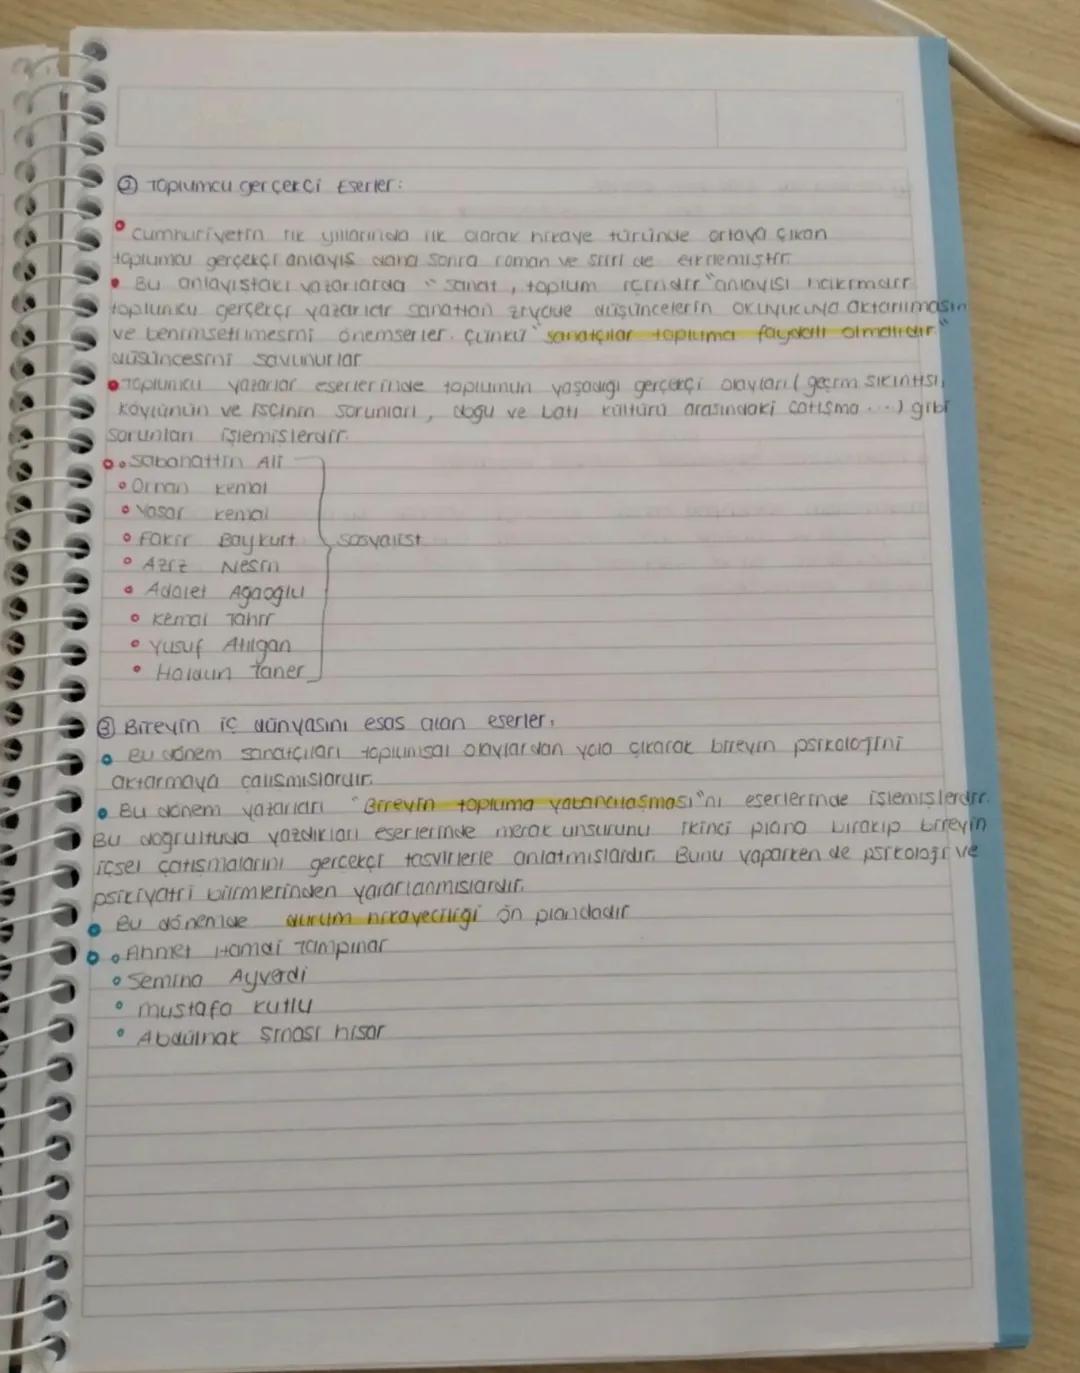 ② Toplumcu gerçekçi Eserler:
Cumhuriyetin ilk yıllarında ilk olarak hikaye türünde ortaya çıkan
toplumcu gerçekçi anlayış daha sonra roman ve şiiri de etkilemiştir.
Bu anlayıştaki yazarlarda "sanat, toplum içindir" anlayışı hakimdir.
toplumcu gerçekçi yazarlar sanattan ziyade düşüncelerin okuyucuya aktarılmasın
ve benimsetilmesini önemserler. Çünkü "sanatçılar topluma faydalı olmalıdır."
düşüncesini savunurlar
Toplumcu yazarlar eserlerinde toplumun yaşadığı gerçekçi olayları (geçim sıkıntısı,
köylünün ve işçinin sorunları, doğu ve batı kültürü arasındaki çatışma ...) gibi
sorunları işlemişlerdir.
Sabahattin Ali
Orhan Kemal
Yaşar Kemal
Fakir Baykurt
sosyalist
Aziz Nesin
Adalet Ağaoğlu
Kemal Tahir
Yusuf Atılgan
Haldun Taner
③ Bireyin iç dünyasını esas alan eserler,
Bu dönem sanatçıları toplumsal olaylardan yola çıkarak bireyin psikolojini
aktarmaya çalışmışlardır.
Bu dönem yazarları "Bireyin topluma yabancılaşması"nı eserlerinde işlemişlerdir.
Bu doğrultuda yazdıkları eserlerinde merak unsurunu ikinci plana bırakıp bireyin
içsel çatışmalarını gerçekçi tasvirlerle anlatmışlardır. Bunu yaparken de psikoloji ve
psikiyatri bilimlerinden yararlanmışlardır.
Bu dönemde durum hikayeciliği ön plandadır
Ahmet Hamdi Tampınar
Semiha Ayverdi
Mustafa Kutlu
Abdülhak Şinasi Hisar